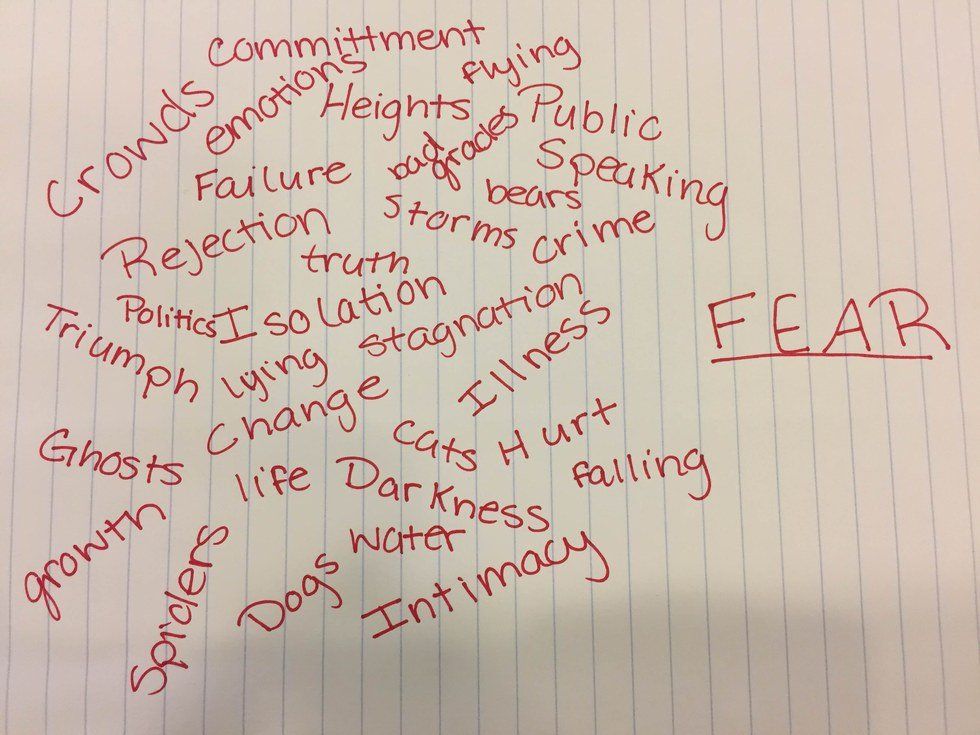 committment
flying
Crowds
emotions
Heights
Public
Speaking
bad
grades
Failure
bears
storms
crime
Rejection
truth
Politics
Isolation
stagnation
FEAR
Triumph
lying
Illness
change
cats
Hurt
Ghosts
life
Darkness
falling
growth
Spiders
water
Dogs
Intimacy